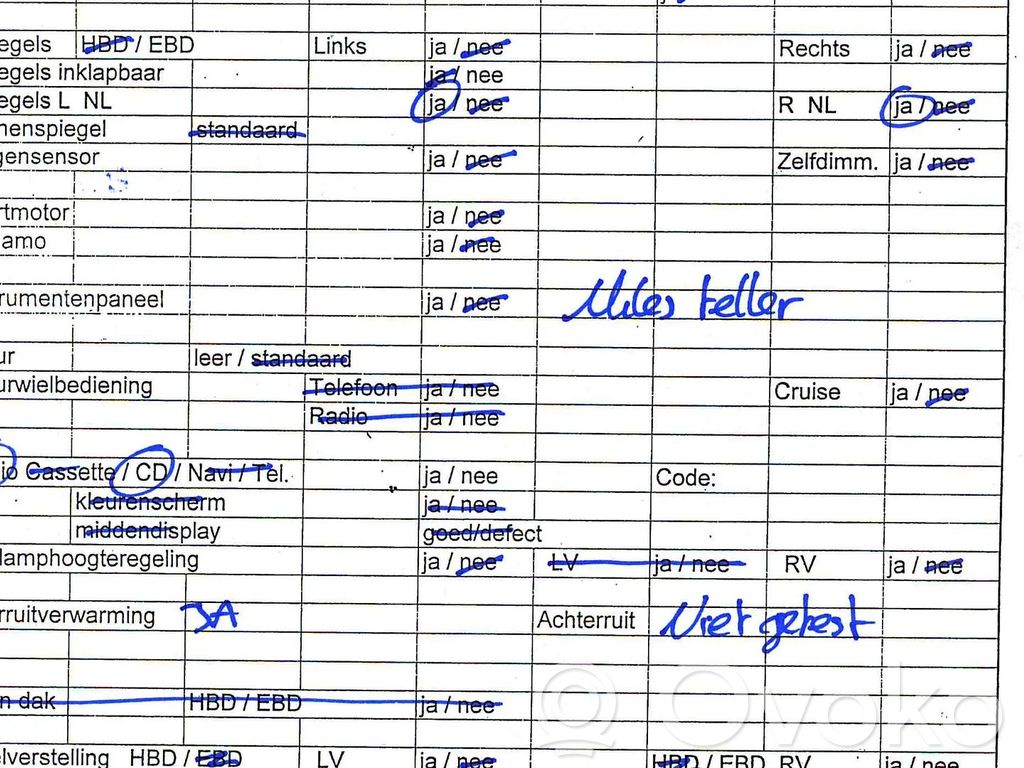 egels HBD / EBD Links ja / nee Rechts ja / nee
egels inklapbaar ja / nee
egels L NL ja / nee R NL ja / nee
nenspiegel standaard
gensensor ja / nee Zelfdimm. ja / nee
rtmotor ja / nee
amo ja / nee
rumentenpaneel ja / nee Miles teller
ur leer / standaard
urwielbediening Telefoon ja / nee Cruise ja / nee
Radio ja / nee
io Cassette / CD / Navi / Tel. ja / nee Code:
kleurenscherm ja / nee
middendisplay goed/defect
lamphoogteregeling ja / nee LV ja / nee RV ja / nee
rruitverwarming JA Achterruit Niet getest
n dak HBD / EBD ja / nee
elverstelling HBD / EBD LV ja / nee HBD / EBD RV ja / nee
Ovoko